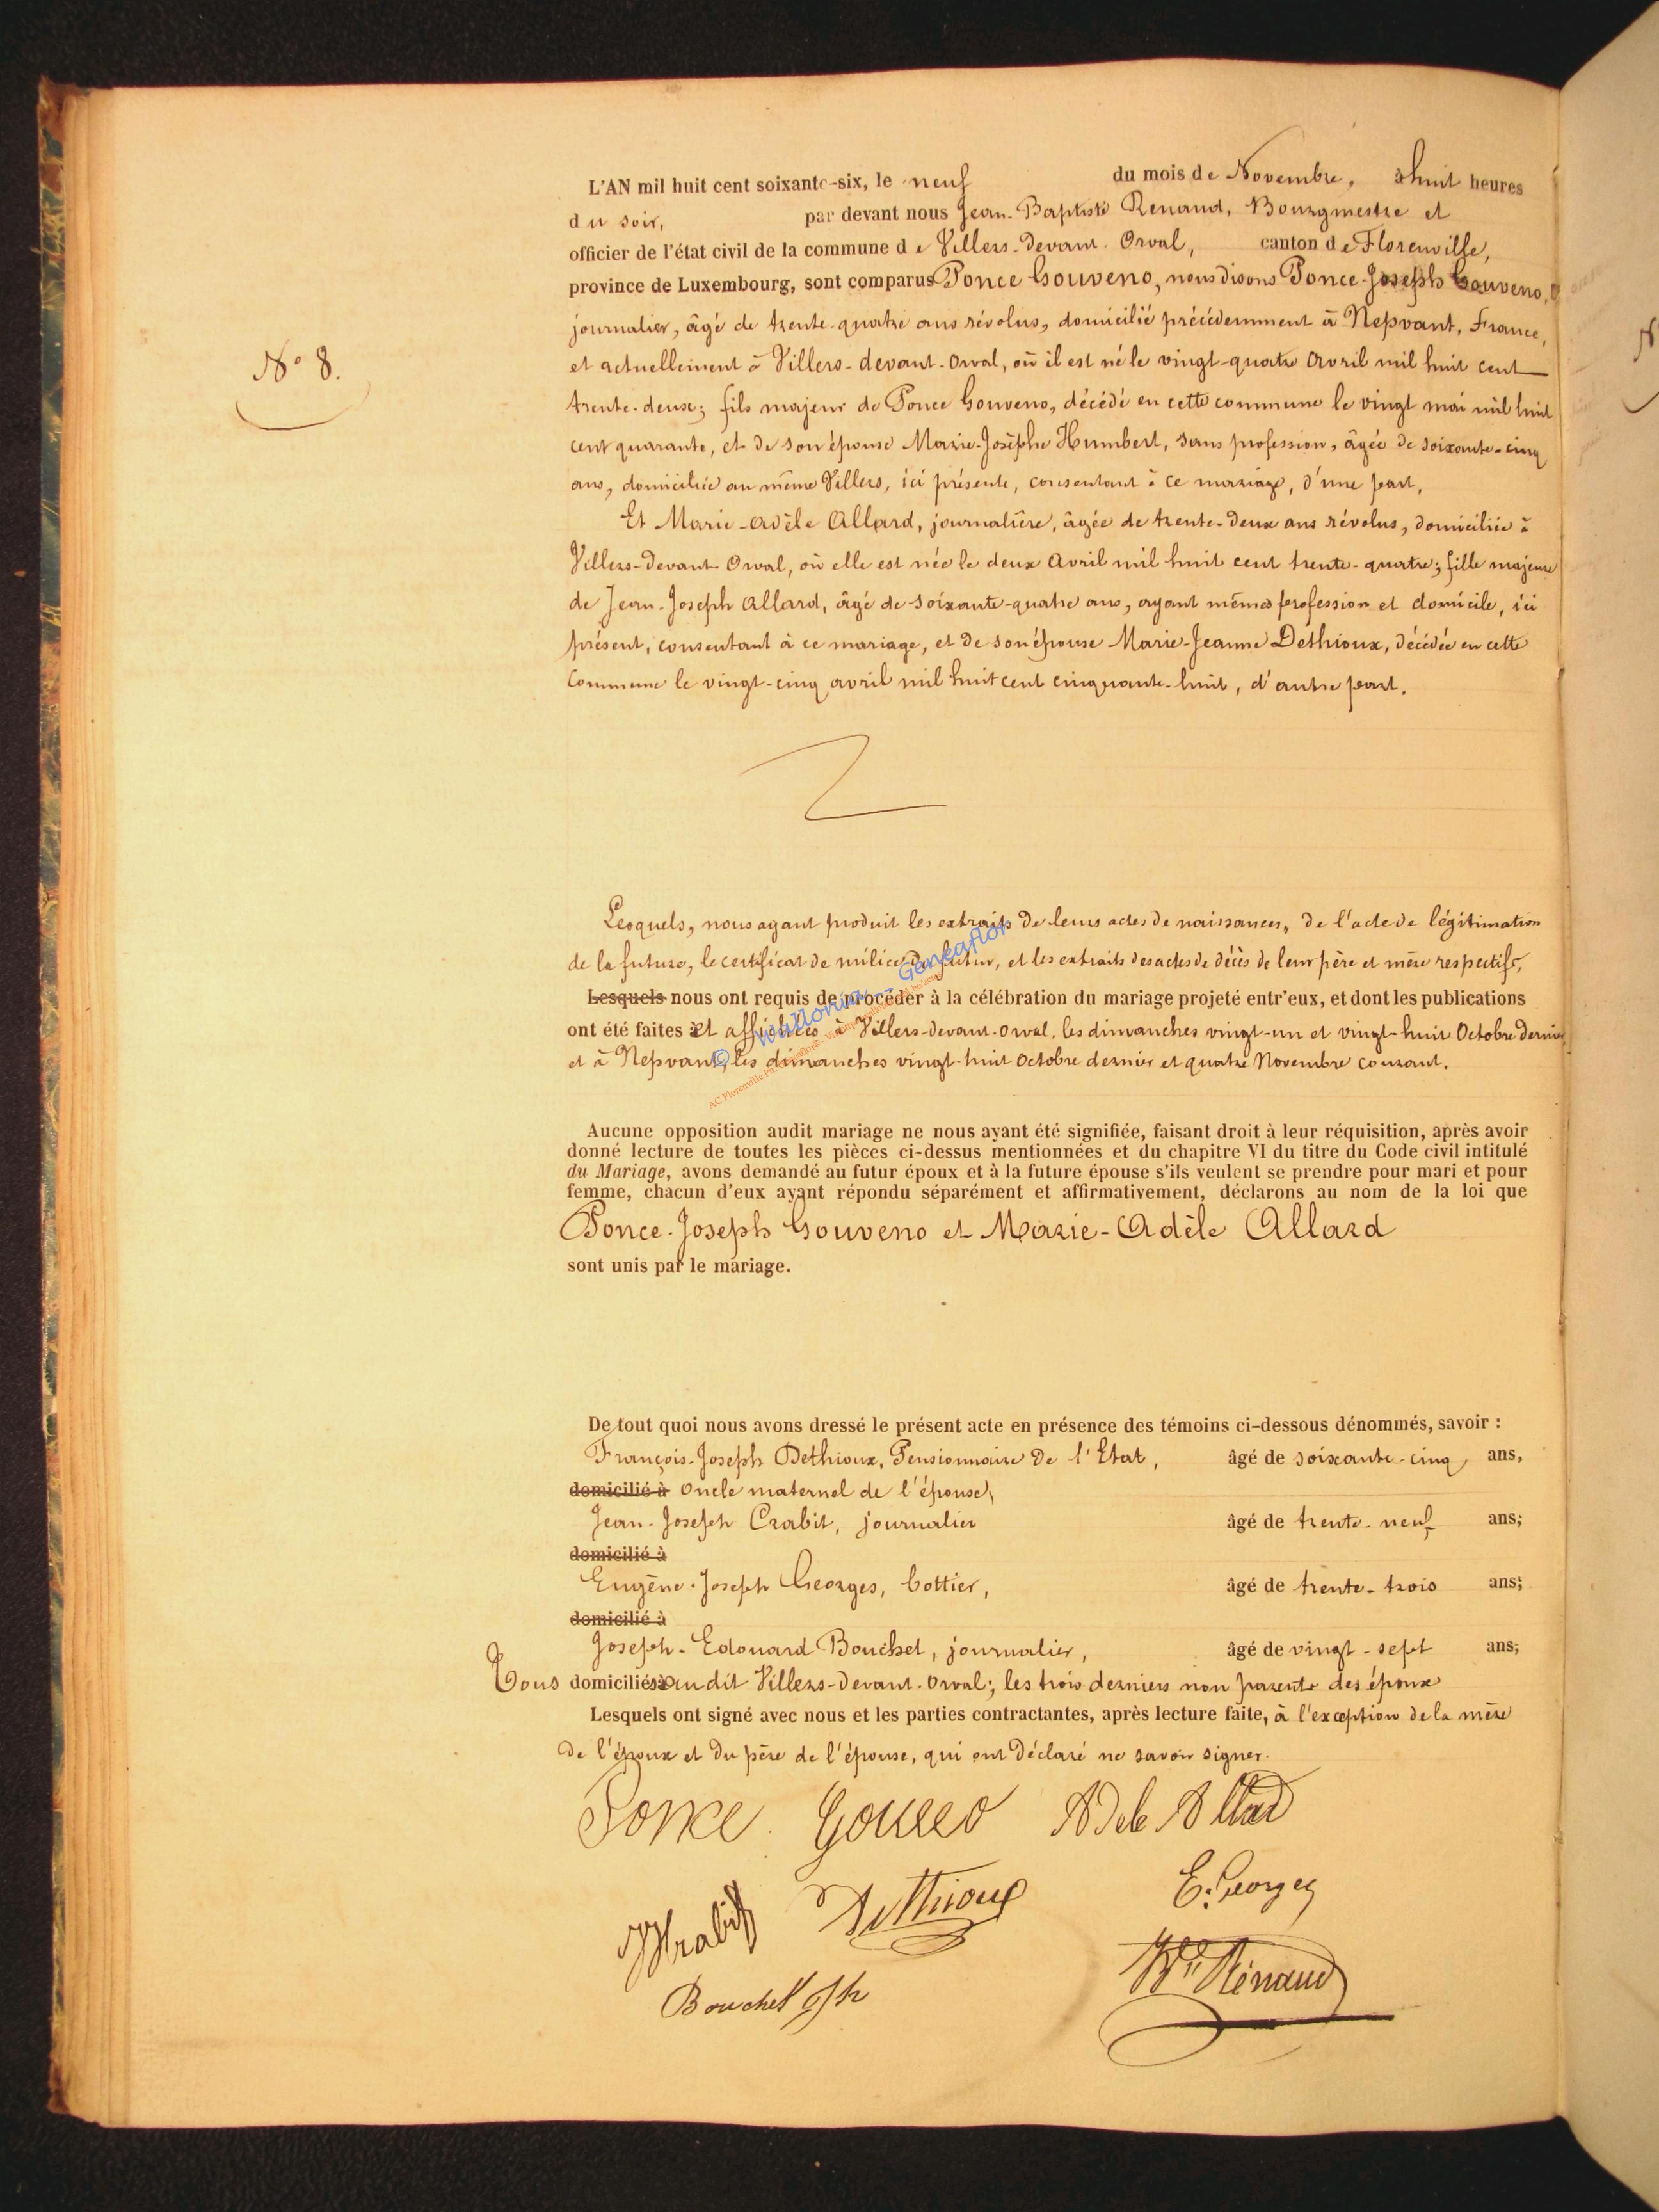 L'AN mil huit cent soixante-six, le neuf du mois de Novembre, à huit heures
du soir, par devant nous Jean-Baptiste Renaud, Bourgmestre et
officier de l'état civil de la commune de Villers-devant-Orval, canton de Florenville,
province de Luxembourg, sont comparus Ponce Gouveno, nous disons Ponce-Joseph Gouveno,
journalier, âgé de trente-quatre ans révolus, domicilié précédemment à Nepvant, France,
N° 8.
et actuellement à Villers-devant-Orval, où il est né le vingt-quatre Avril mil huit cent
trente-deux; fils majeur de Ponce Gouveno, décédé en cette commune le vingt mai mil huit
cent quarante, et de son épouse Marie-Josèphe Humbert, sans profession, âgée de soixante-cinq
ans, domiciliée au même Villers, ici présente, consentant à ce mariage, d'une part,
Et Marie-Adèle Allard, journalière, âgée de trente-deux ans révolus, domiciliée à
Villers-devant-Orval, où elle est née le deux Avril mil huit cent trente-quatre; fille majeure
de Jean-Joseph Allard, âgé de soixante-quatre ans, ayant mêmes profession et domicile, ici
présent, consentant à ce mariage, et de son épouse Marie-Jeanne Dethioux, décédée en cette
Commune le vingt-cinq avril mil huit cent cinquante-huit, d'autre part.
Lesquels, nous ayant produit les extraits de leurs actes de naissances, de l'acte de légitimation
de la future, le certificat de milice du futur, et les extraits des actes de décès de leur père et mère respectifs,
Lesquels nous ont requis de procéder à la célébration du mariage projeté entr'eux, et dont les publications
ont été faites et affichées à Villers-devant-Orval, les dimanches vingt-un et vingt-huit Octobre dernier
et à Nepvant, les dimanches vingt-huit Octobre dernier et quatre Novembre courant.
© Wallonia - Geneaflor
AC Florenville
Aucune opposition audit mariage ne nous ayant été signifiée, faisant droit à leur réquisition, après avoir
donné lecture de toutes les pièces ci-dessus mentionnées et du chapitre VI du titre du Code civil intitulé
du Mariage, avons demandé au futur époux et à la future épouse s'ils veulent se prendre pour mari et pour
femme, chacun d'eux ayant répondu séparément et affirmativement, déclarons au nom de la loi que
Ponce-Joseph Gouveno et Marie-Adèle Allard
sont unis par le mariage.
De tout quoi nous avons dressé le présent acte en présence des témoins ci-dessous dénommés, savoir :
François-Joseph Dethioux, Pensionnaire de l'Etat, âgé de soixante-cinq ans,
domicilié à Oncle maternel de l'épouse,
Jean-Joseph Crabit, journalier âgé de trente-neuf ans;
domicilié à
Eugène-Joseph Georges, Cottier, âgé de trente-trois ans;
domicilié à
Joseph-Edouard Bouchet, journalier, âgé de vingt-sept ans;
Tous domiciliés audit Villers-devant-Orval; les trois derniers non parents des époux
Lesquels ont signé avec nous et les parties contractantes, après lecture faite, à l'exception de la mère
de l'époux et du père de l'épouse, qui ont déclaré ne savoir signer.
Ponce Gouveo Adele Allard
Dethioux E. Georges
Bouchet Jph Renaud